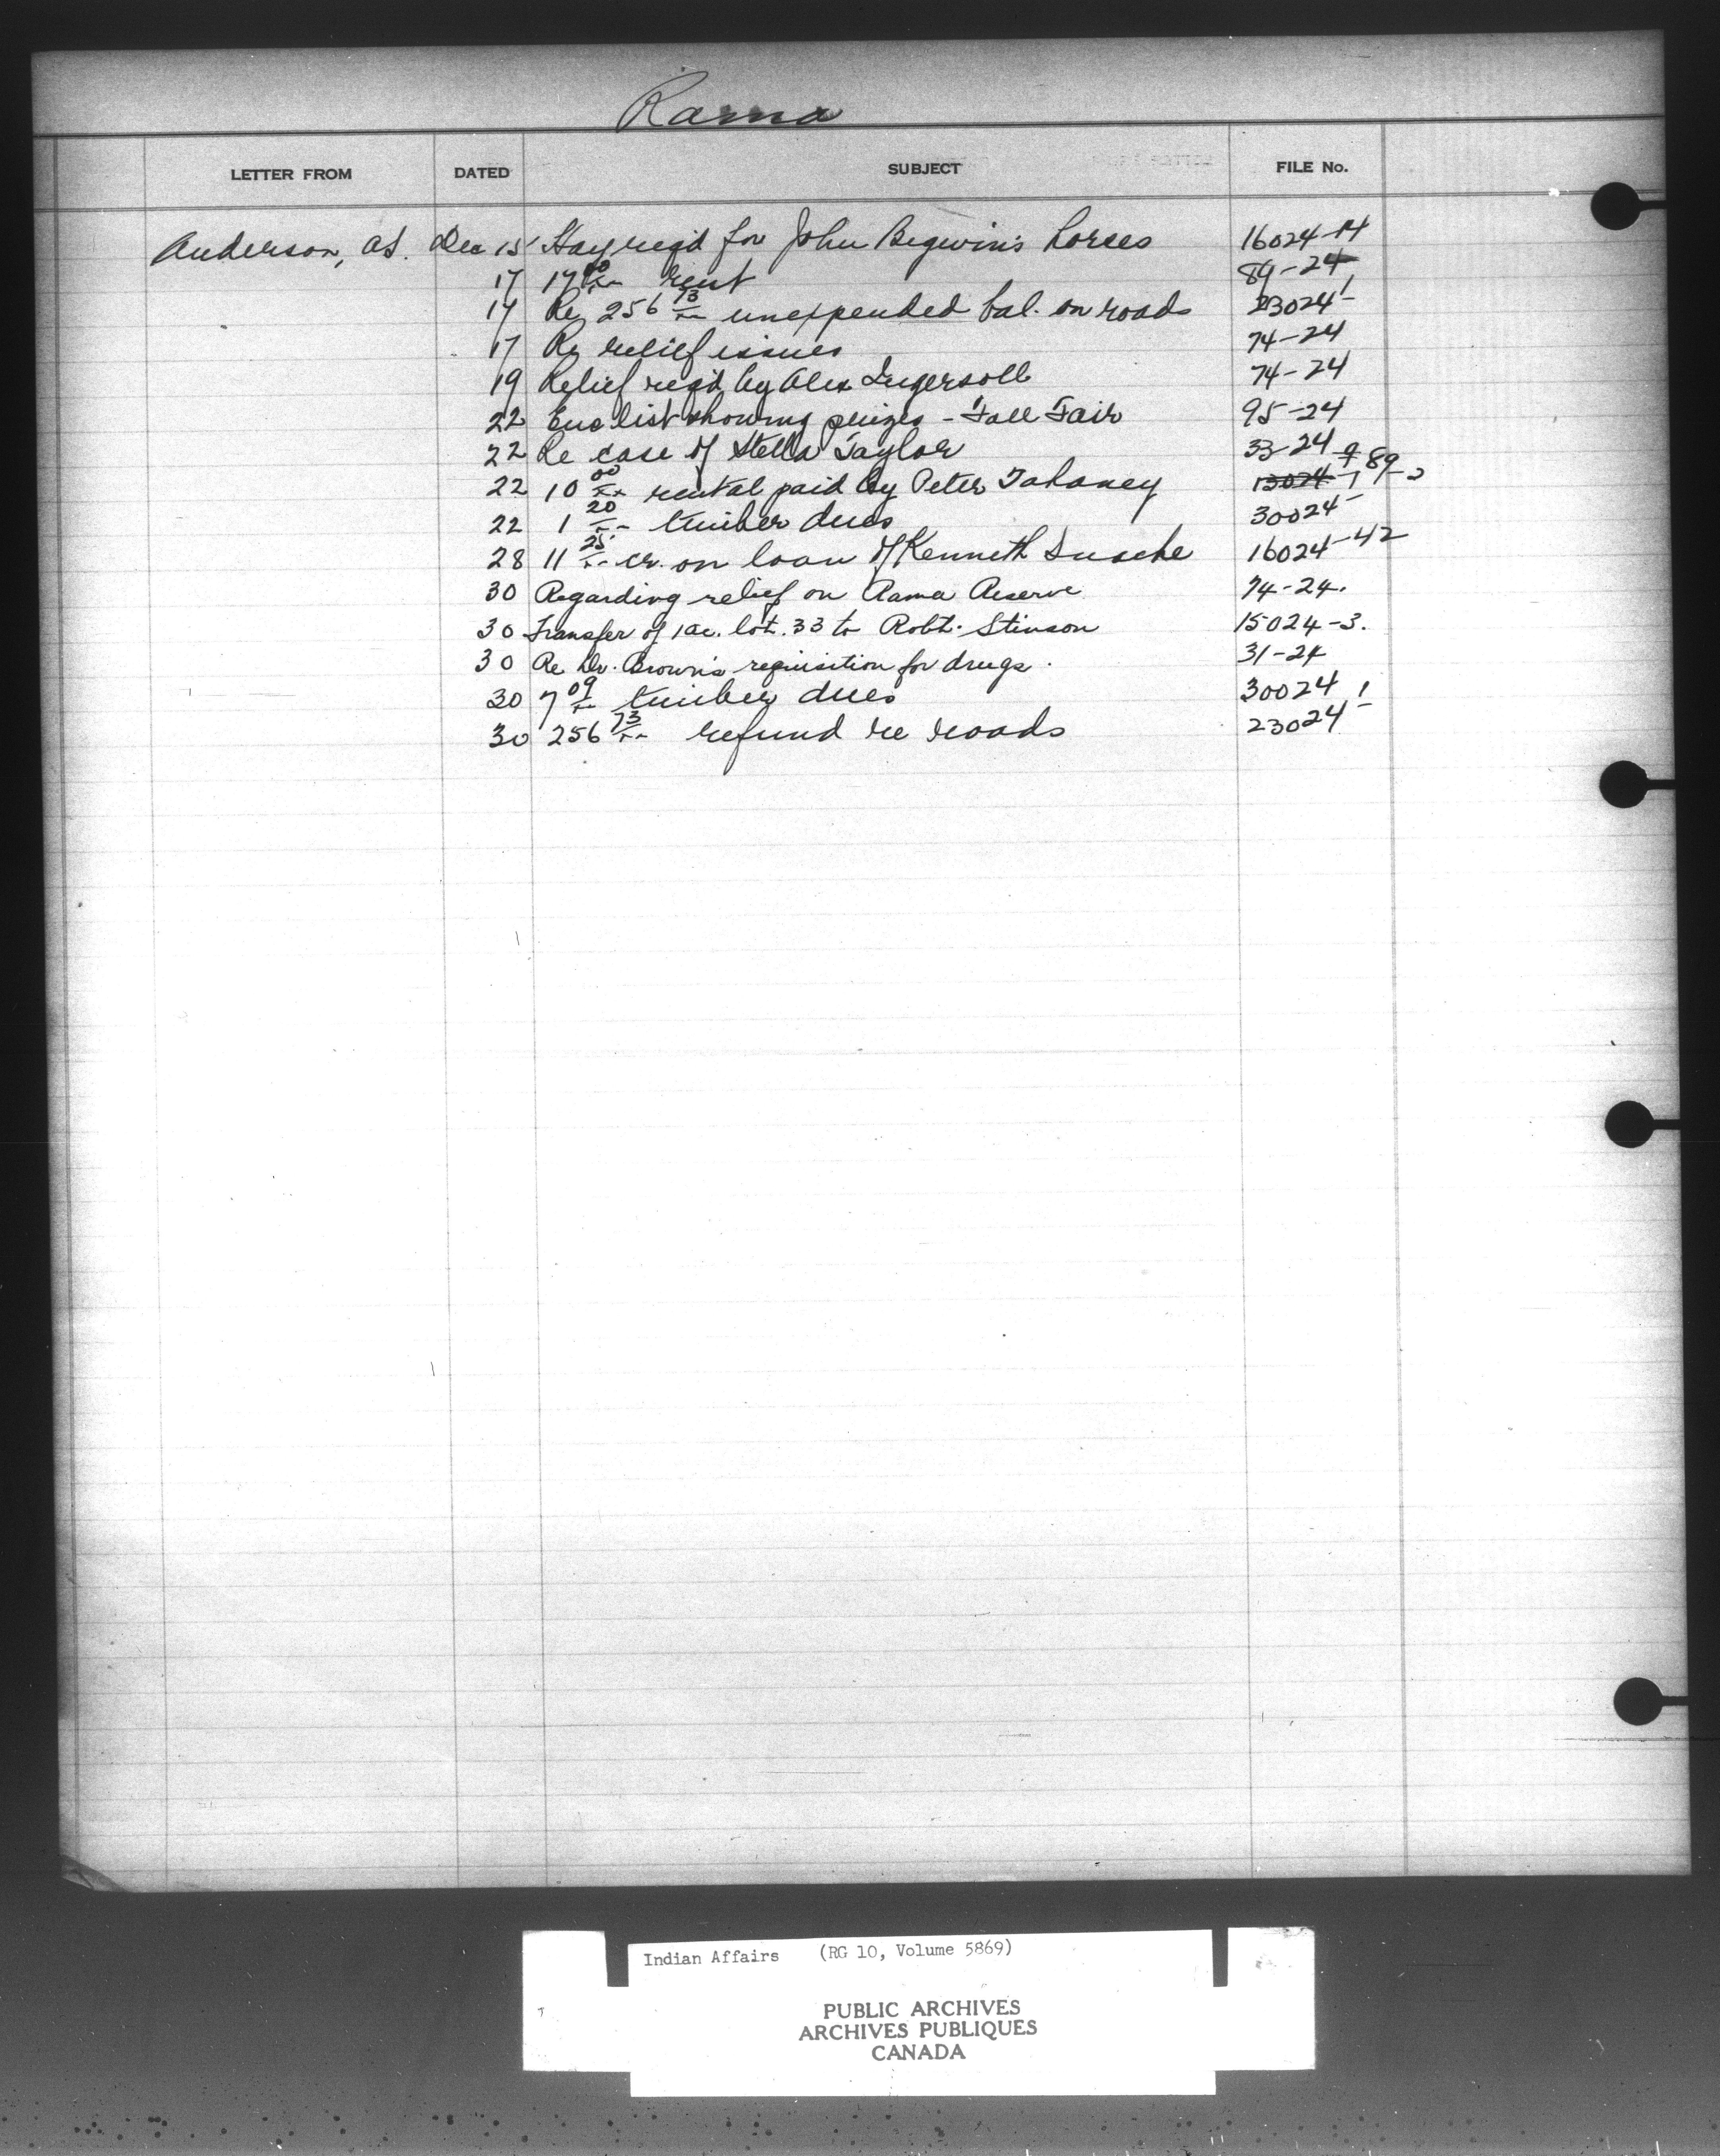 Rama
LETTER FROM DATED SUBJECT FILE No.
Anderson, as. Dec 15 Hay req'd for John Bigwin's horses 16024-14
17 17 00/xx rent 89-24
17 Re 256 73/xx unexpended bal. on roads 23024-1
17 Re relief issues 74-24
19 Relief req'd by Alex Ingersoll 74-24
22 Enc list showing prizes - Fall Fair 95-24
22 Re case of Stella Taylor 33-24
22 10 00/xx rental paid by Peter 13024-1 89-2
22 1 20/xx timber dues 30024-
28 11 25/xx cr. on loan of Kenneth 16024-42
30 Regarding relief on Rama Reserve 74-24.
30 Transfer of 1 ac. lot. 33 to Robt. Stinson 15024-3.
30 Re Dr. Brown's requisition for drugs. 31-24
30 7 09/xx timber dues 30024
30 256 73/xx refund re roads 23024-1
Indian Affairs (RG 10, Volume 5869)
PUBLIC ARCHIVES
ARCHIVES PUBLIQUES
CANADA